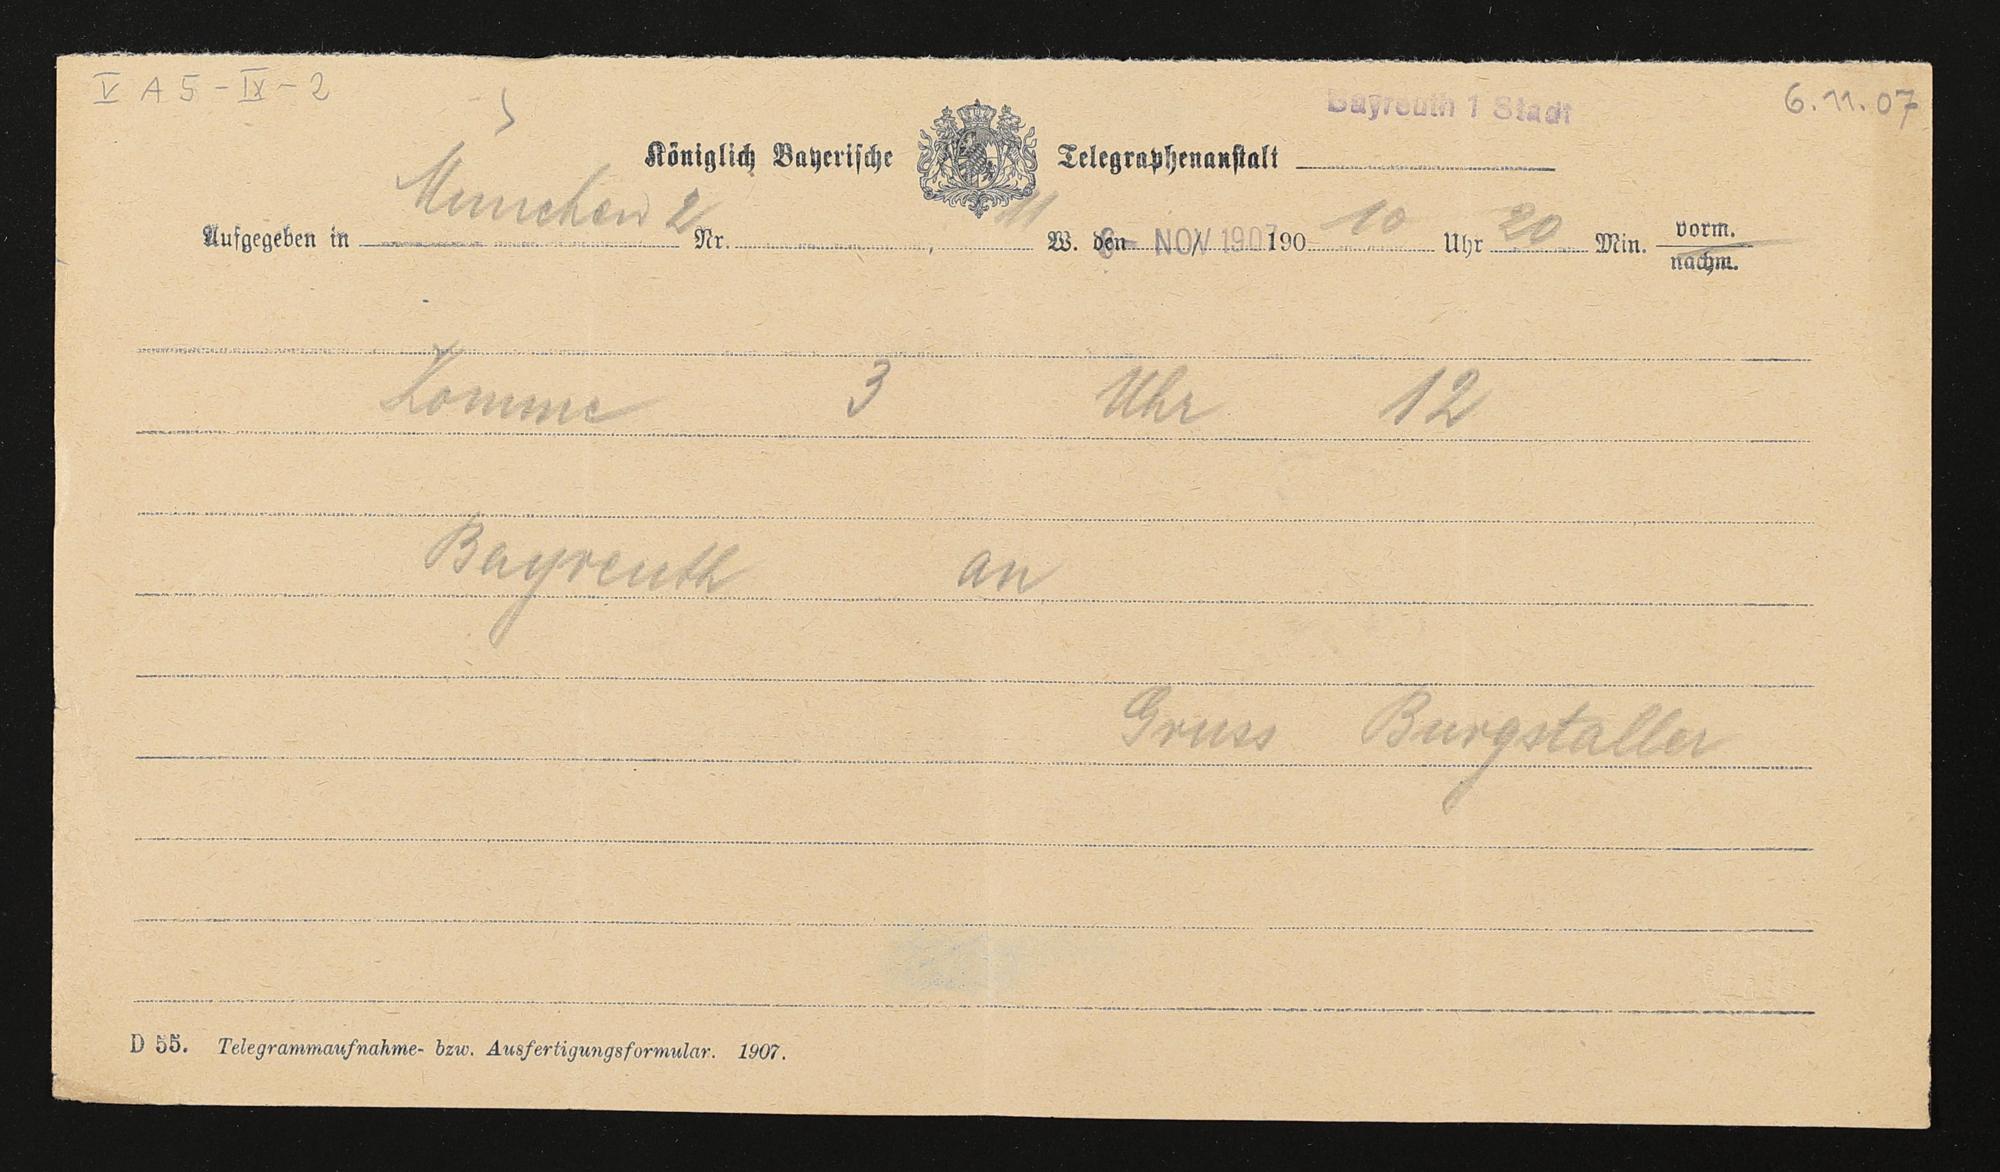 V A 5 - IX - 2
6.11.07
Bayreuth 1 Stadt
Königlich Bayerische Telegraphenanstalt
Aufgegeben in München 2 Nr. , 11 W. den 6- NOV 1907 190 10 Uhr 20 Min. vorm.
nachm.
Komme 3 Uhr 12
Bayreuth an
Gruss Burgstaller
D 55. Telegrammaufnahme- bzw. Ausfertigungsformular. 1907.